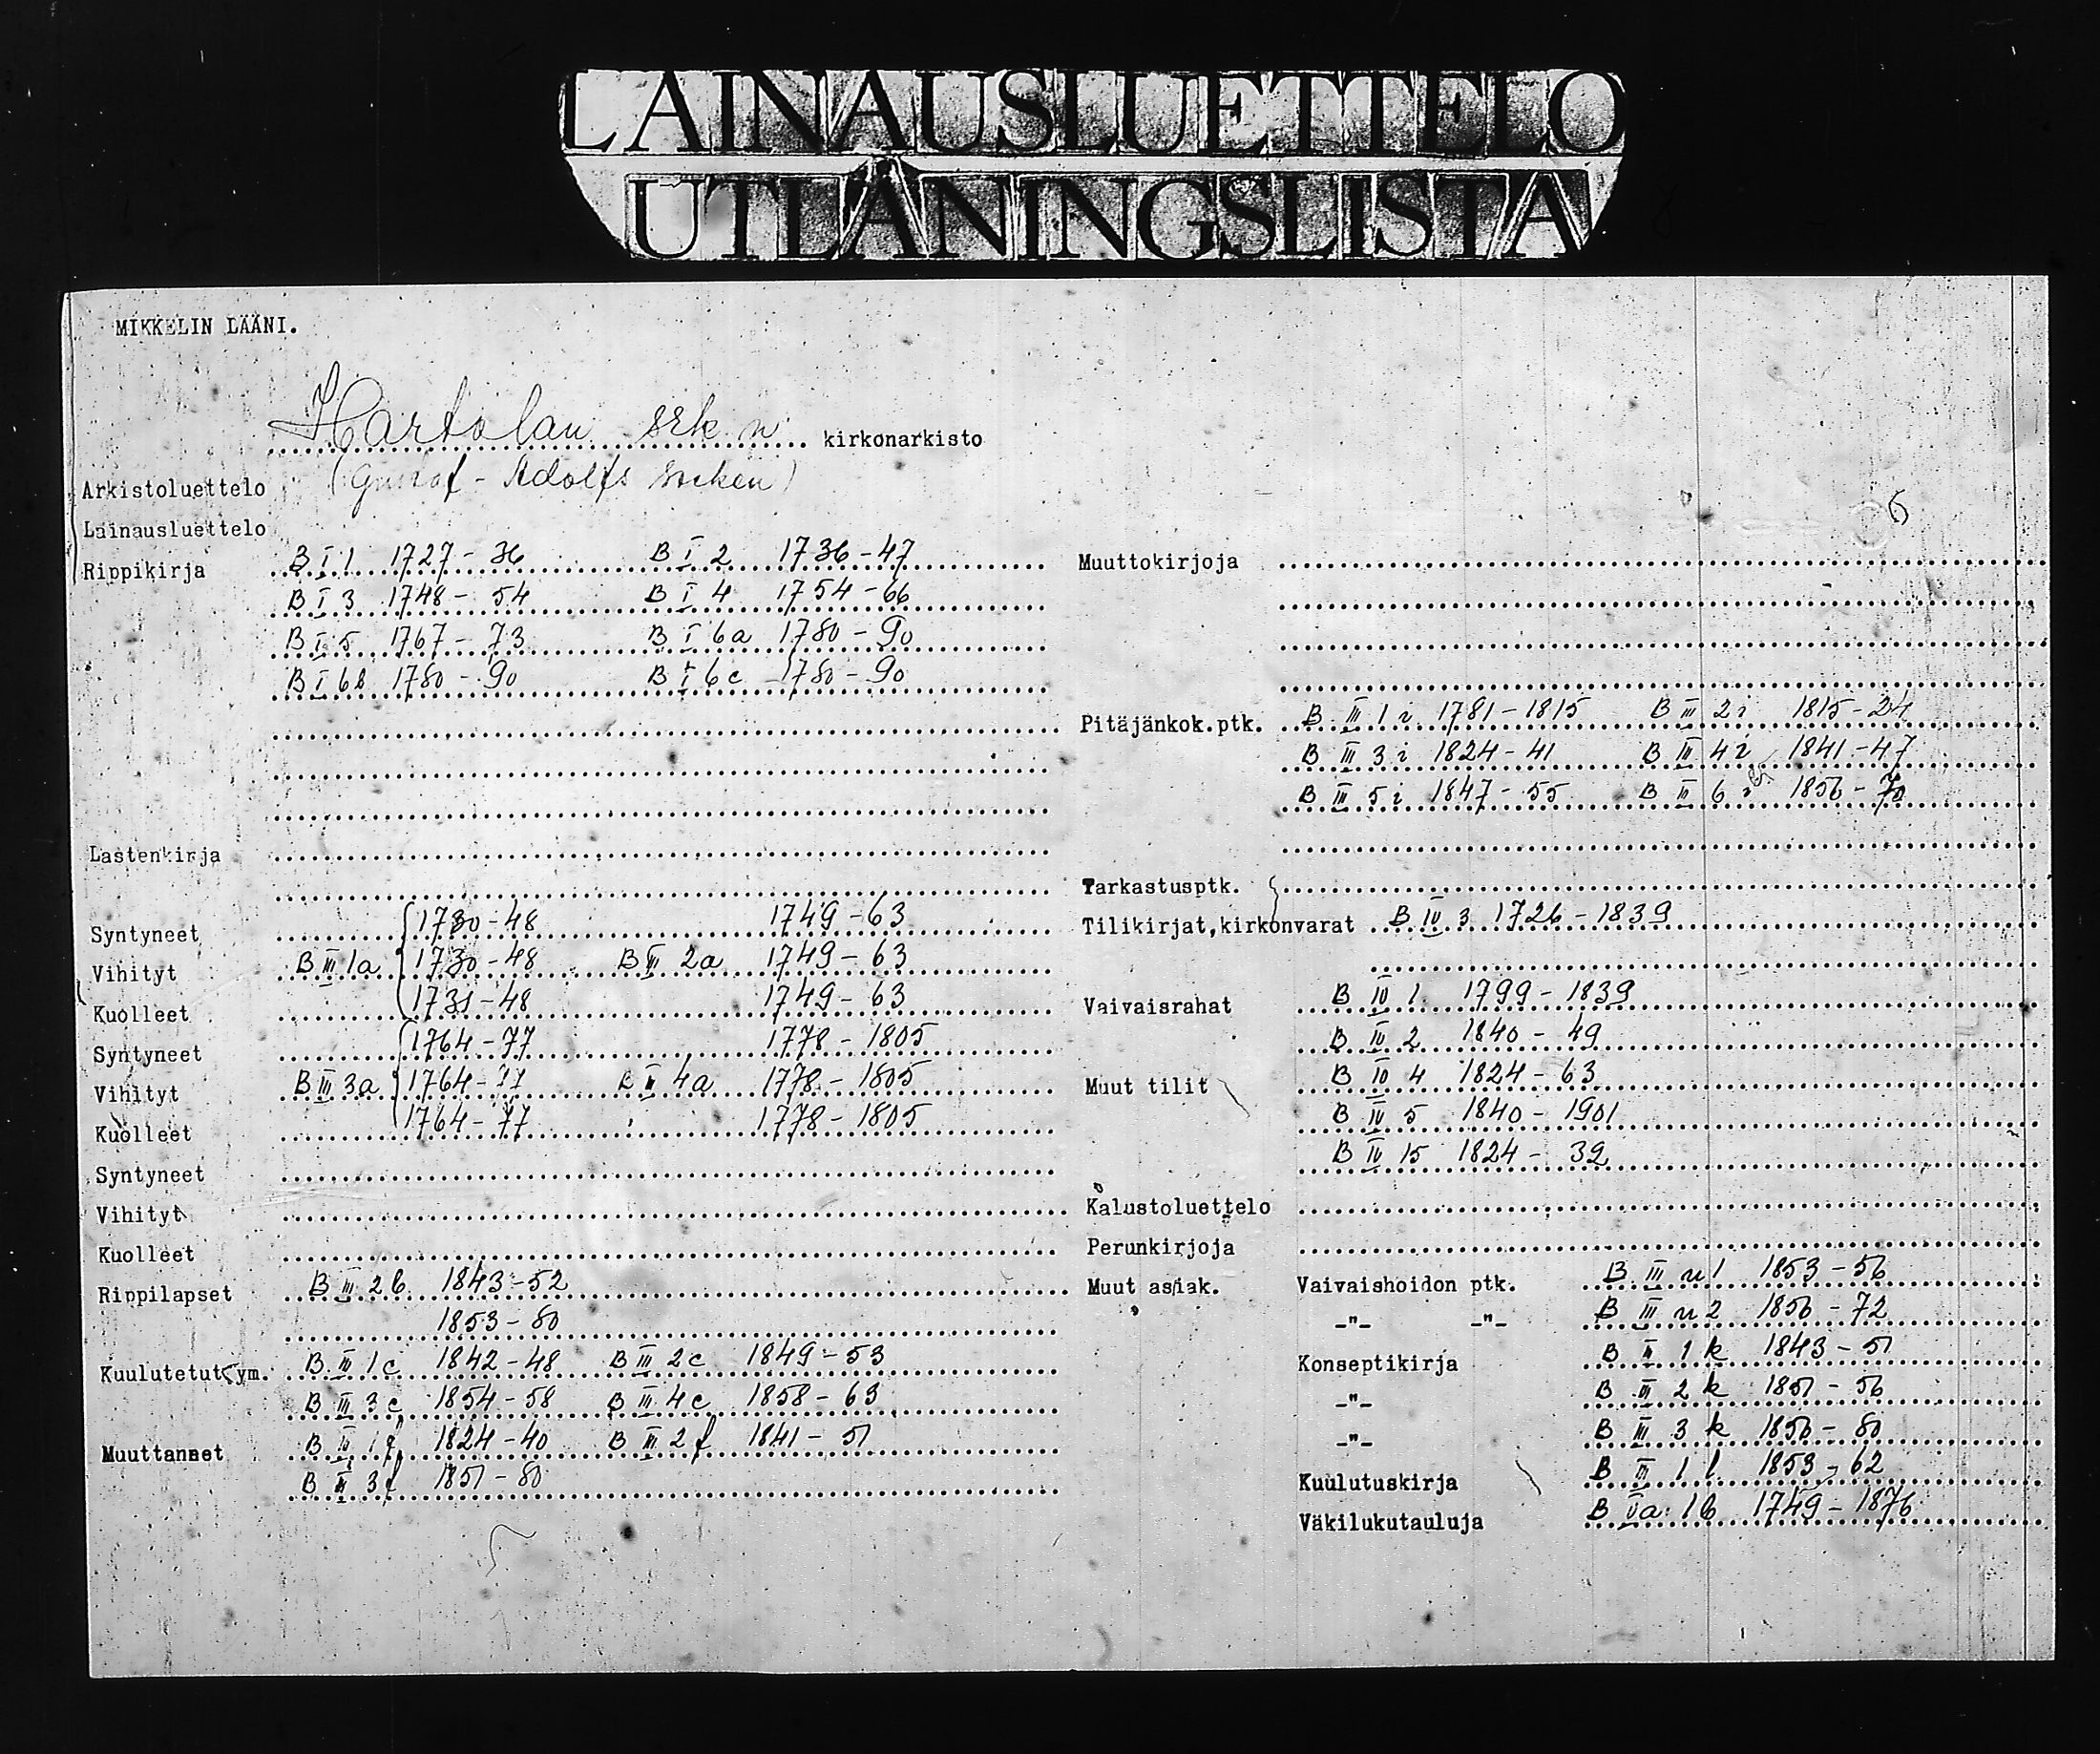 LAINAUSLUETTELO
UTLÅNINGSLISTA
MIKKELIN LÄÄNI.
Hartolan srk n kirkonarkisto
Arkistoluettelo (Gustaf - Adolfs socken)
Lainausluettelo
Rippikirja B I 1 1727 - 36 B I 2 1736 - 47
B I 3 1748 - 54 B I 4 1754 - 66
B I 5 1767 - 73 B I 6a 1780 - 90
B I 6b 1780 - 90 B I 6c 1780 - 90
Lastenkirja
Syntyneet 1730 - 48 1749 - 63
Vihityt B III 1a 1730 - 48 B III 2a 1749 - 63
Kuolleet 1731 - 48 1749 - 63
Syntyneet 1764 - 77 1778 - 1805
Vihityt B III 3a 1764 - 77 B II 4a 1778 - 1805
Kuolleet 1764 - 77 1778 - 1805
Syntyneet
Vihityt
Kuolleet
Rippilapset B III 2b 1843 - 52
1853 - 80
Kuulutetut ym. B III 1c 1842 - 48 B III 2c 1849 - 53
B III 3c 1854 - 58 B III 4c 1858 - 63
Muuttaneet B III 1f 1824 - 40 B III 2f 1841 - 51
B II 3f 1851 - 80
6
Muuttokirjoja
Pitäjänkok.ptk. B III 1i 1781 - 1815 B III 2i 1815 - 24
B III 3i 1824 - 41 B III 4i 1841 - 47
B III 5i 1847 - 55 B III 6i 1856 - 70
Tarkastusptk.
Tilikirjat, kirkonvarat B IV 3 1726 - 1839
Vaivaisrahat B IV 1 1799 - 1839
B IV 2 1840 - 49
Muut tilit B IV 4 1824 - 63
B IV 5 1840 - 1901
B IV 15 1824 - 39
Kalustoluettelo
Perunkirjoja
Muut asiak. Vaivaishoidon ptk. B III n 1 1853 - 56
-"- -"- B III n 2 1856 - 72
Konseptikirja B II 1 k 1843 - 51
-"- B III 2 k 1851 - 56
-"- B III 3 k 1856 - 80
Kuulutuskirja B III 1 l 1853 - 62
Väkilukutauluja B Va 1b 1749 - 1876